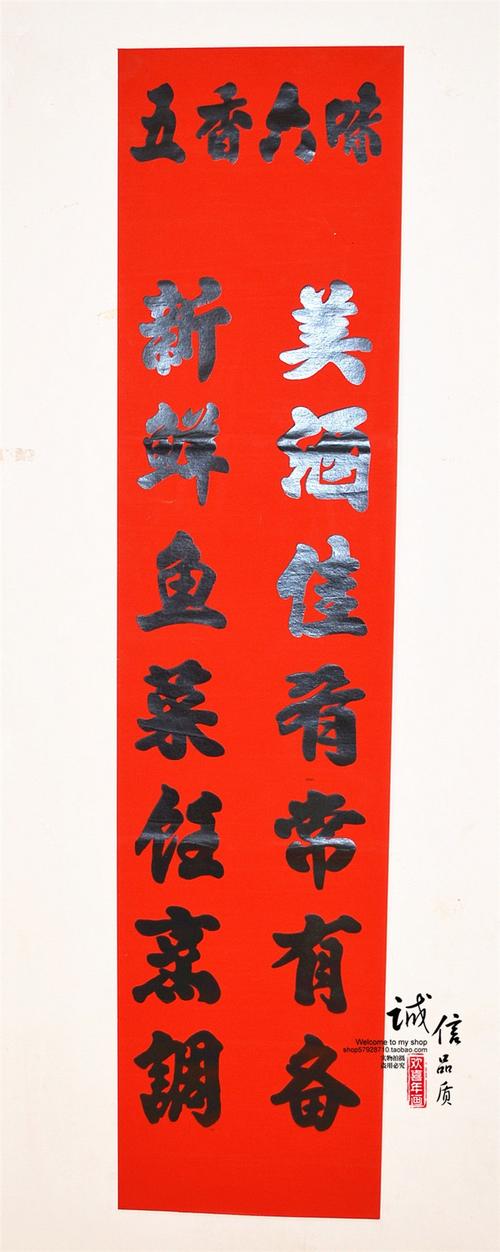 五香六味
美酒佳肴常有备
新鲜鱼菜饪烹調
诚信品质
Welcome to my shop
shop57928710.taobao.com
实物拍摄
盗用必究
欢喜年画